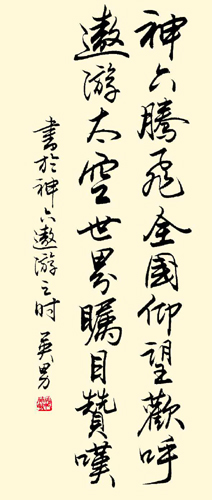 神六腾飞全国仰望欢呼
遨游太空世界瞩目赞叹
书于神六遨游之时 英男